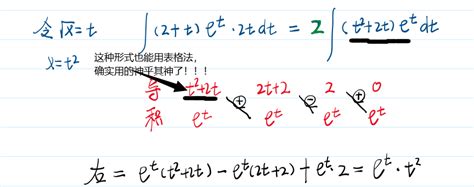 令√x=t ∫(2+t)e^t·2tdt = 2∫(t²+2t)e^t dt
x=t²
这种形式也能用表格法，
确实用的神乎其神了！！！
导 t²+2t ⊕ 2t+2 ⊖ 2 ⊕ 0
积 e^t e^t e^t e^t
左 = e^t(t²+2t) - e^t(2t+2) + e^t·2 = e^t·t²